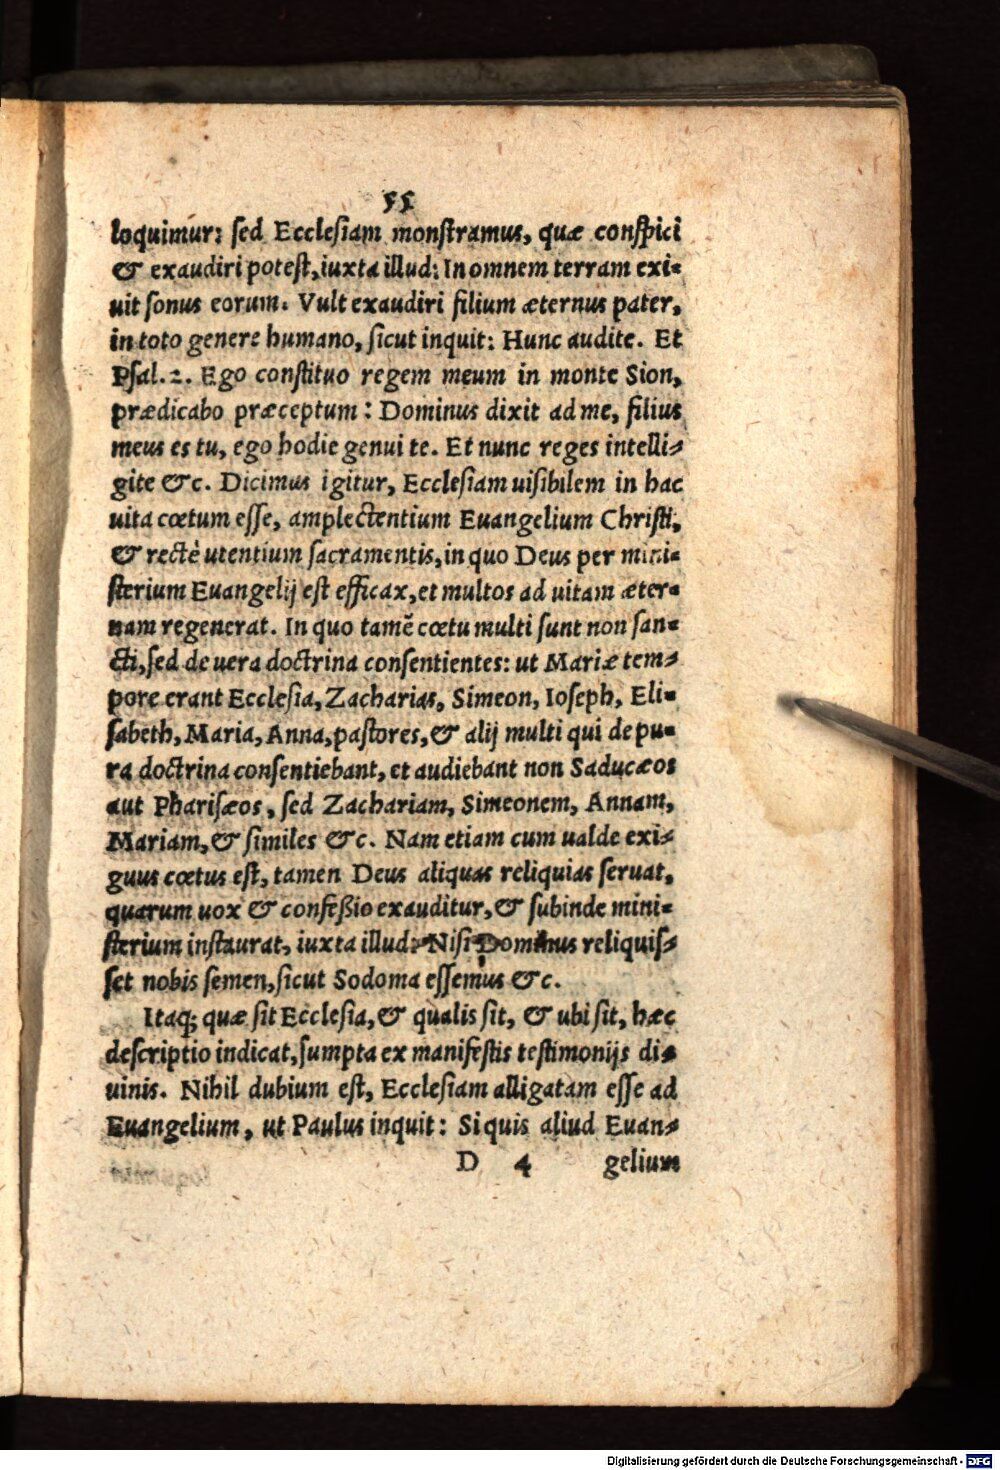 55
loquimur: sed Ecclesiam monstramus, quæ conspici
& exaudiri potest, iuxta illud: In omnem terram exi-
uit sonus eorum. Vult exaudiri filium æternus pater,
in toto genere humano, sicut inquit: Hunc audite. Et
Psal. 2. Ego constituo regem meum in monte Sion,
prædicabo præceptum: Dominus dixit ad me, filius
meus es tu, ego hodie genui te. Et nunc reges intelli-
gite &c. Dicimus igitur, Ecclesiam uisibilem in hac
uita cœtum esse, amplectentium Euangelium Christi,
& rectè utentium sacramentis, in quo Deus per mini-
sterium Euangelij est efficax, et multos ad uitam æter-
nam regenerat. In quo tamẽ cœtu multi sunt non san-
cti, sed de uera doctrina consentientes: ut Mariæ tem-
pore erant Ecclesia, Zacharias, Simeon, Ioseph, Eli-
sabeth, Maria, Anna, pastores, & alij multi qui de pu-
ra doctrina consentiebant, et audiebant non Saducæos
aut Pharisæos, sed Zachariam, Simeonem, Annam,
Mariam, & similes &c. Nam etiam cum ualde exi-
guus cœtus est, tamen Deus aliquas reliquias seruat,
quarum uox & confeßio exauditur, & subinde mini-
sterium instaurat, iuxta illud: Nisi Dominus reliquis-
set nobis semen, sicut Sodoma essemus &c.
Itaq; quæ sit Ecclesia, & qualis sit, & ubi sit, hæc
descriptio indicat, sumpta ex manifestis testimonijs di-
uinis. Nihil dubium est, Ecclesiam alligatam esse ad
Euangelium, ut Paulus inquit: Si quis aliud Euan-
D 4 gelium
Digitalisierung gefördert durch die Deutsche Forschungsgemeinschaft - DFG